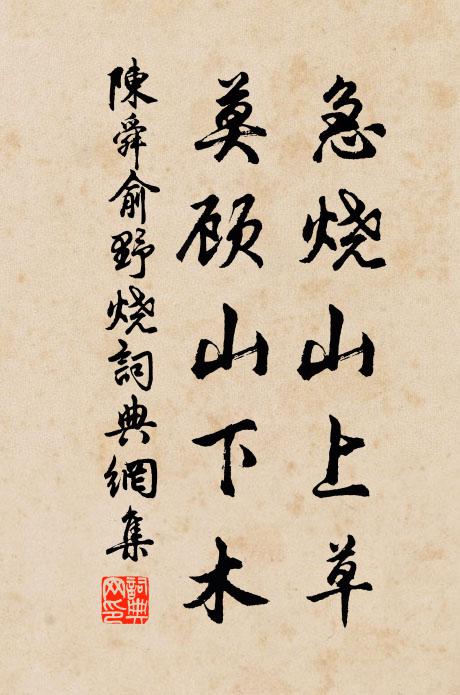 急烧山上草
莫顾山下木
陳舜俞野烧詞典網集
詞典
网印